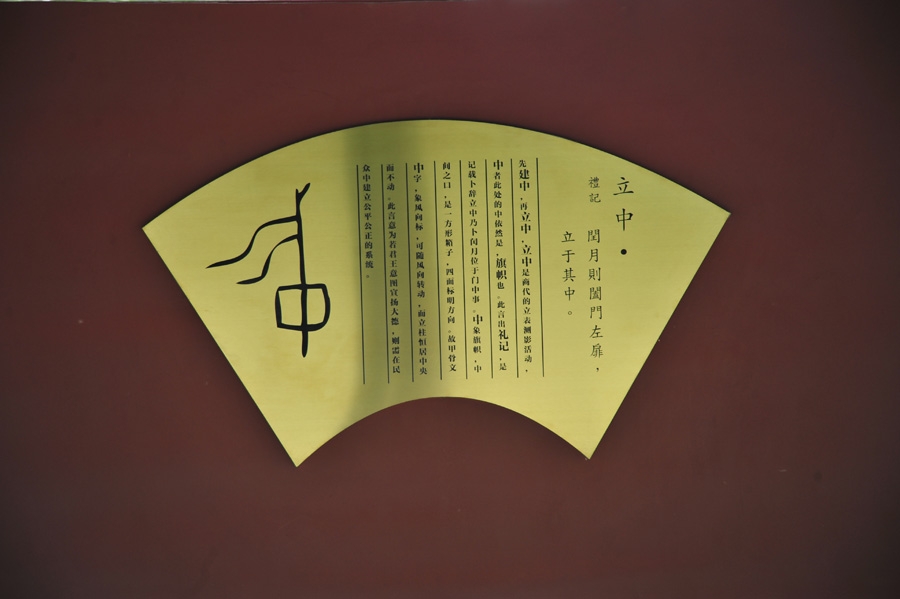 立中·
禮記 閏月則闔門左扉，
立于其中。
先建中，再立中，立中是商代的立表测影活动，
中者此处的中依然是，旗帜也。此言出礼记，是
记载卜辞立中乃卜闰月位于门中事。中象旗帜，中
间之口，是一方形箱子，四面标明方向。故甲骨文
中字，象风向标，可随风向转动，而立柱恒居中央
而不动。此言意为若君王意图宣扬大德，则需在民
众中建立公平公正的系统。